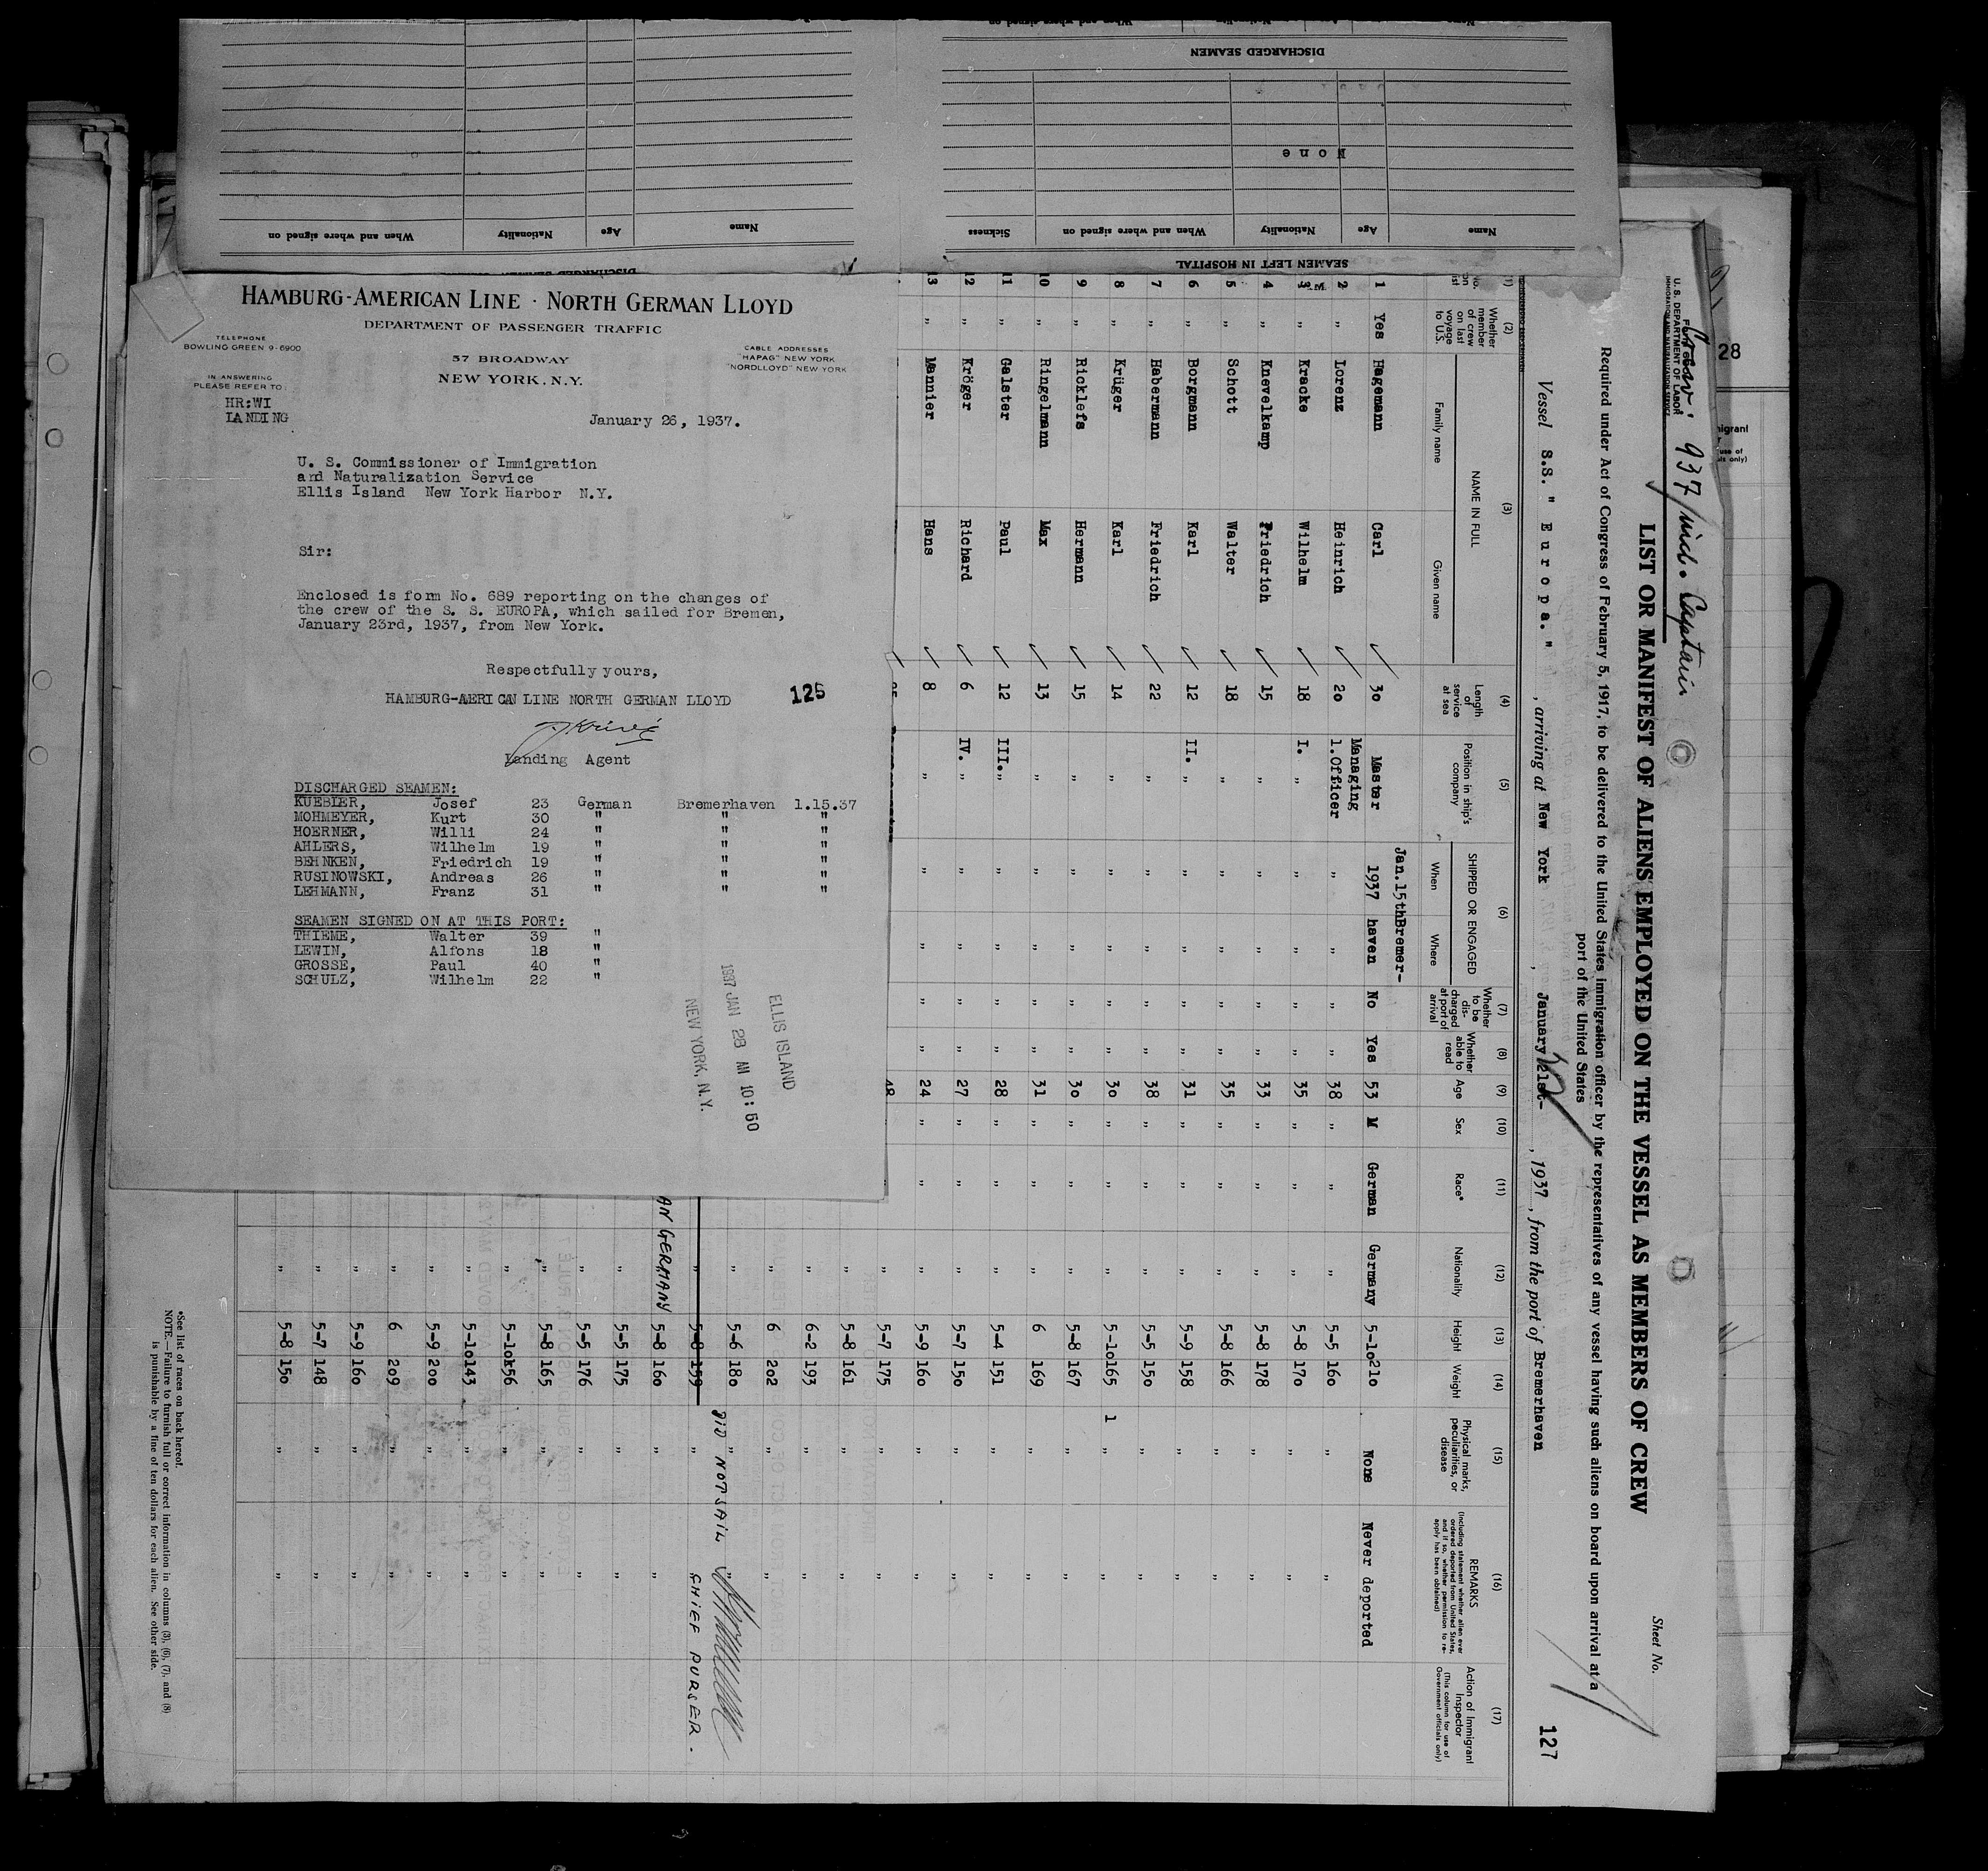 Name
When and where signed on
DISCHARGED SEAMEN
None
Name
Age
Nationality
When and where signed on
Sickness
Name
Age
Nationality
When and where signed on
SEAMEN LEFT IN HOSPITAL
DISCHARGED SEAMEN
HAMBURG-AMERICAN LINE · NORTH GERMAN LLOYD
DEPARTMENT OF PASSENGER TRAFFIC
TELEPHONE
BOWLING GREEN 9-6900
57 BROADWAY
NEW YORK, N.Y.
CABLE ADDRESSES
"HAPAG" NEW YORK
"NORDLLOYD" NEW YORK
IN ANSWERING
PLEASE REFER TO:
HR:WI
LANDING
January 26, 1937.
U. S. Commissioner of Immigration
and Naturalization Service
Ellis Island New York Harbor N.Y.
Sir:
Enclosed is form No. 689 reporting on the changes of
the crew of the S. S. EUROPA, which sailed for Bremen,
January 23rd, 1937, from New York.
Respectfully yours,
HAMBURG-AMERICAN LINE NORTH GERMAN LLOYD
125
Landing Agent
DISCHARGED SEAMEN:
KUEBLER, Josef 23 German Bremerhaven 1.15.37
MOHMEYER, Kurt 30 " " "
HOERNER, Willi 24 " " "
AHLERS, Wilhelm 19 " " "
BEHNKEN, Friedrich 19 " " "
RUSINOWSKI, Andreas 26 " " "
LEHMANN, Franz 31 " " "
SEAMEN SIGNED ON AT THIS PORT:
THIEME, Walter 39 "
LEWIN, Alfons 18 "
GROSSE, Paul 40 "
SCHULZ, Wilhelm 22 "
ELLIS ISLAND
1937 JAN 28 AM 10:50
NEW YORK, N.Y.
28
U. S. DEPARTMENT OF LABOR
IMMIGRATION AND NATURALIZATION SERVICE
Crew: 937 incl. Captain
Sheet No.
LIST OR MANIFEST OF ALIENS EMPLOYED ON THE VESSEL AS MEMBERS OF CREW
Required under Act of Congress of February 5, 1917, to be delivered to the United States immigration officer by the representatives of any vessel having such aliens on board upon arrival at a
port of the United States
Vessel S.S. " Europa. " , arriving at New York , January 21st- , 1937 , from the port of Bremerhaven
127
(2) (3) (4) (5) (6) (7) (8) (9) (10) (11) (12) (13) (14) (15) (16) (17)
Whether member of crew on last voyage to U.S.
NAME IN FULL
Family name
Given name
Length of service at sea
Position in ship's company
SHIPPED OR ENGAGED
When
Where
Whether to be discharged at port of arrival
Whether able to read
Age
Sex
Race*
Nationality
Height
Weight
Physical marks, peculiarities, or disease
REMARKS
(Including statement whether alien ever ordered deported from United States, and if so, whether permission to reapply has been obtained)
Action of Immigrant Inspector
(This column for use of Government officials only)
Jan.15th Bremer-
1 Yes Hagemann Carl 30 Master 1937 haven No Yes 53 M German Germany 5-10 210 None Never deported
Managing
2 " Lorenz Heinrich 20 1.Officer " " " " 38 " " " 5-5 160 " "
3 " Kracke Wilhelm 18 I. " " " " " 35 " " " 5-8 170 " "
4 " Knevelkamp Friedrich 15 " " " " " 33 " " " 5-8 178 " "
5 " Schott Walter 18 " " " " " 35 " " " 5-8 166 " "
6 " Borgmann Karl 12 II. " " " " " 31 " " " 5-9 158 " "
7 " Habermann Friedrich 22 " " " " " 38 " " " 5-5 150 " "
8 " Krüger Karl 14 " " " " " 30 " " " 5-10 165 1 " "
9 " Ricklefs Hermann 15 " " " " " 30 " " " 5-8 167 " "
10 " Ringelmann Max 13 " " " " " 31 " " " 6 169 " "
11 " Galster Paul 12 III. " " " " " 28 " " " 5-4 151 " "
12 " Kröger Richard 6 IV. " " " " " 27 " " " 5-7 150 " "
13 " Mannier Hans 8 " " " " " 24 " " " 5-9 160 " "
" 5-7 175 " "
" 5-8 161 " "
" 6-2 193 " "
" 6 202 " "
" 5-6 180 " "
DID NOT SAIL
" 5-8 159 " CHIEF PURSER.
AN GERMANY 5-8 160 " "
" 5-5 175 " "
" 5-5 176 " "
" 5-8 165 " "
" 5-10 156 " "
" 5-10 143 " "
" 5-9 200 " "
" 6 209 " "
" 5-9 160 " "
" 5-7 148 " "
" 5-8 150 " "
*See list of races on back hereof.
NOTE.—Failure to furnish full or correct information in columns (3), (6), (7), and (8)
is punishable by a fine of ten dollars for each alien. See other side.